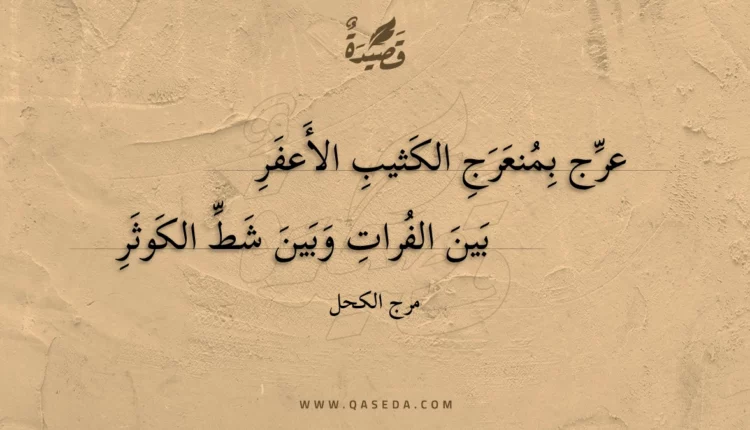 قَصِيدَةٌ
عرِّج بِمُنعَرَجِ الكَثيبِ الأَعفَرِ
بَينَ الفُراتِ وَبَينَ شَطِّ الكَوثَرِ
مرج الكحل
WWW.QASEDA.COM